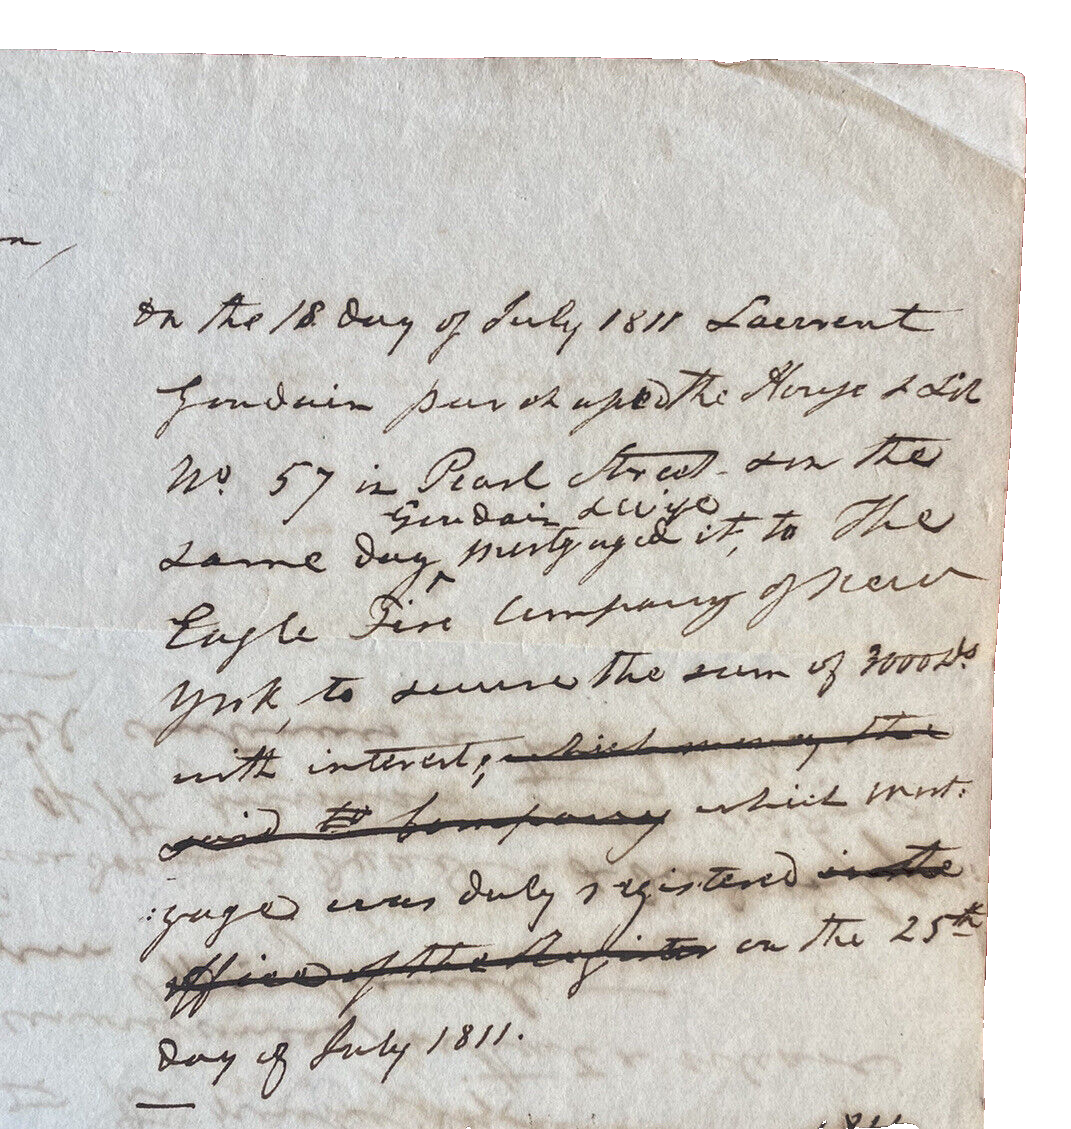 On the 18 day of July 1811 Laurent
Goudain purchased the House & Lot
No. 57 in Pearl Street - on the
Goudain & Wife
same day ^ mortgaged it, to The
Eagle Fire Company of New
York, to secure the sum of 3000 Ds.
with interest, which money the
said to Company which mort:
:gage was duly registered in the
office of the Register on the 25th
day of July 1811.